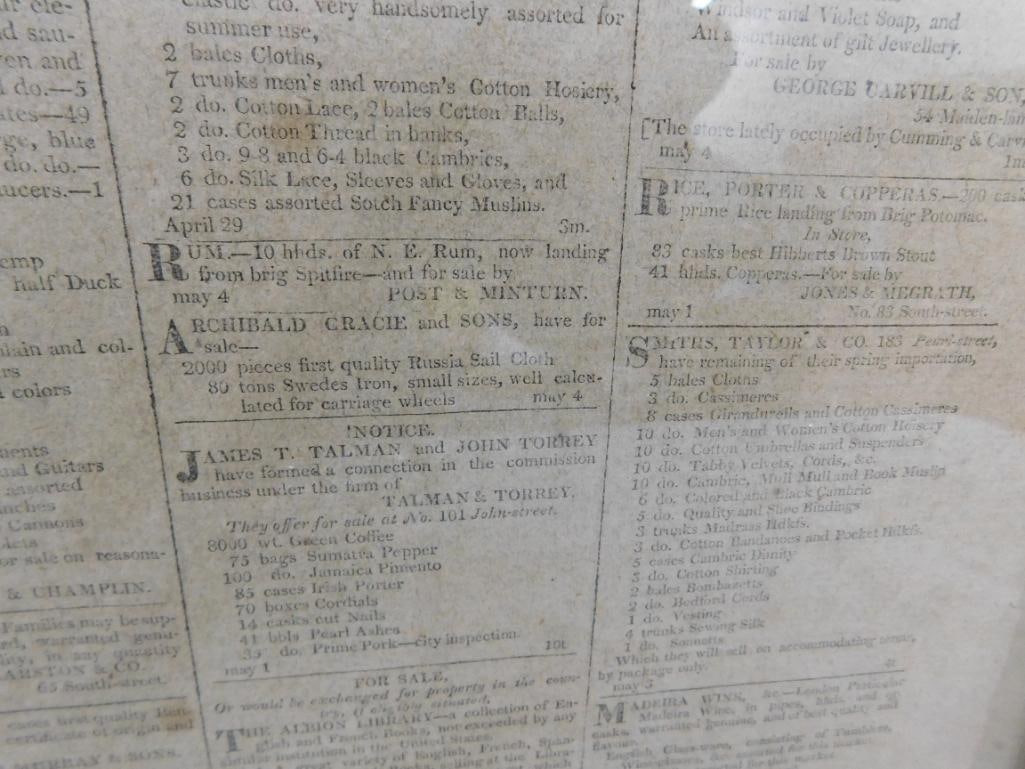 and sau-
ven and
do.—5
ates—49
ge, blue
do. do.—
ucers.—1
emp
half Duck
plain and col-
rs
colors
ments
and Guitars
assorted
nches
Cannons
or sale on reasona-
& CHAMPLIN.
Families may be sup-
ed, warranted genu-
ity, in any quantity
ARSTON & CO.
65 South-street.
cases first quality
certificate of origin and
MURRAY & SONS.
elastic do. very handsomely assorted for
summer use,
2 bales Cloths,
7 trunks men's and women's Cotton Hosiery,
2 do. Cotton Lace, 2 bales Cotton Balls,
2 do. Cotton Thread in banks,
3 do. 9-8 and 6-4 black Cambrics,
6 do. Silk Lace, Sleeves and Gloves, and
21 cases assorted Sotch Fancy Muslins.
April 29 3m.
RUM.—10 hhds. of N. E. Rum, now landing
from brig Spitfire—and for sale by
may 4 POST & MINTURN.
ARCHIBALD GRACIE and SONS, have for
sale—
2000 pieces first quality Russia Sail Cloth
80 tons Swedes Iron, small sizes, well calcu-
lated for carriage wheels may 4
!NOTICE.
JAMES T. TALMAN and JOHN TORREY
have formed a connection in the commission
business under the firm of
TALMAN & TORREY.
They offer for sale at No. 101 John-street.
8000 wt. Green Coffee
75 bags Sumatra Pepper
100 do. Jamaica Pimento
85 cases Irish Porter
70 boxes Cordials
14 casks cut Nails
41 bbls Pearl Ashes
35 do. Prime Pork—city inspection.
may 1 10t
FOR SALE,
Or would be exchanged for property in the coun-
try, if eligibly situated,
THE ALBION LIBRARY—a collection of En-
glish and French Books, not exceeded by any
similar institution in the United States.
variety of English, French, Span-
Books, selling at the Libra-
which
Windsor and Violet Soap, and
An assortment of gilt Jewellery.
For sale by
GEORGE CARVILL & SON,
54 Maiden-lan
[The store lately occupied by Cumming & Carv
may 4 1m
RICE, PORTER & COPPERAS.—200 cask
prime Rice landing from Brig Potomac.
In Store,
83 casks best Hibberts Brown Stout
41 hhds. Copperas.—For sale by
JONES & MEGRATH,
may 1 No. 83 South-street.
SMITHS, TAYLOR & CO. 183 Pearl-street,
have remaining of their spring importation,
5 bales Cloths
3 do. Cassimeres
8 cases Girandurells and Cotton Cassimeres
10 do. Men's and Women's Cotton Hoisery
10 do. Cotton Umbrellas and Suspenders
10 do. Tabby Velvets, Cords, &c.
10 do. Cambric, Mull Mull and Book Muslin
6 do. Colored and Black Cambric
5 do. Quality and Shoe Bindings
3 trunks Madrass Hdkfs.
3 do. Cotton Bandanoes and Pocket Hdkfs.
5 cases Cambric Dimity
3 do. Cotton Shirting
2 bales Bombazetts
2 do. Bedford Cords
1 do. Vesting
4 trunks Sewing Silk
1 do. Sonnetts
Which they will sell on accommodating terms,
by package only.
may 3
MADEIRA WINE, &c.—London Particular
Madeira Wine, in pipes, hhds. and qr.
casks, warranted genuine, and of best quality and
flavour.
English Glass-ware, consisting of Tumblers,
for this market.